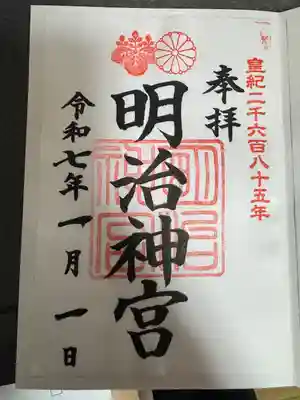 皇紀二千六百八十五年
奉拝
明治神宮
令和七年一月一日